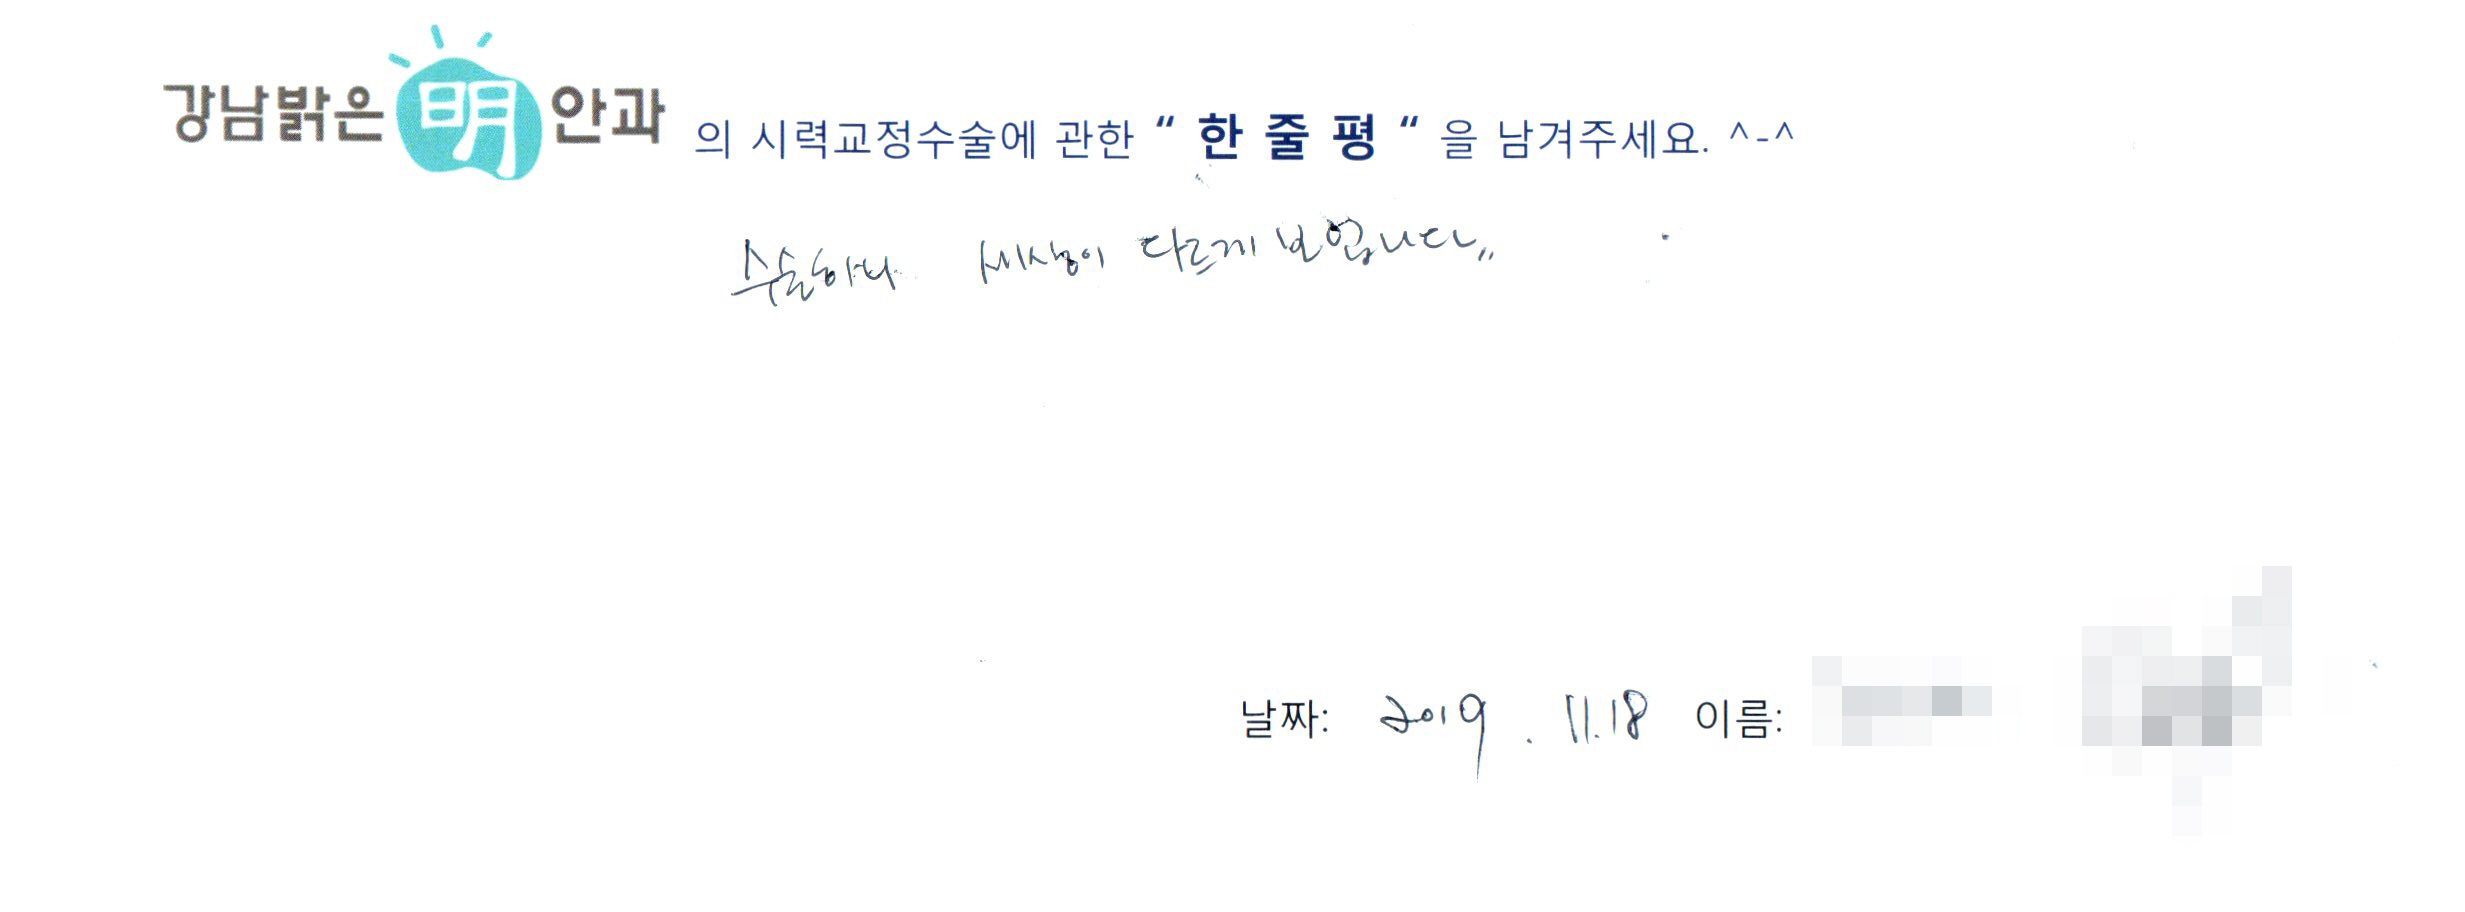 강남밝은 明 안과 의 시력교정수술에 관한 “ 한 줄 평 “ 을 남겨주세요. ^-^
수술하니 세상이 다르게 보입니다,,
날짜: 2019 . 11.18 이름: